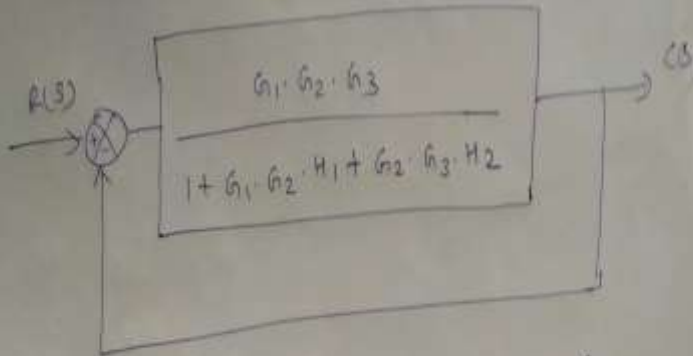 R(S)
C(S
G1. G2. G3
1+ G1. G2. H1+ G2. G3. H2